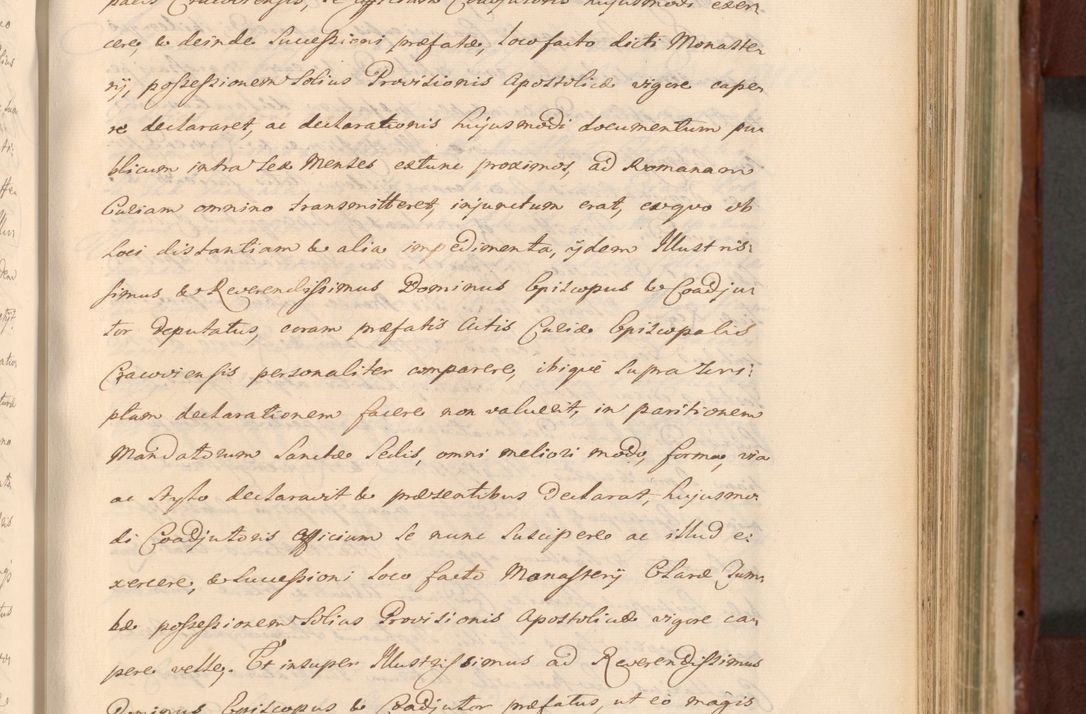 palis Cracoviensis, se officium Coadjutoris hujusmodi exer,
cere, & deinde Successioni præfatæ, loco facto dicti Monaste,
rij, possessionem Solius Provisionis Apostolicæ vigore cape,
re declararet, ac declarationis hujusmodi documentum pu,
blicum intra Sex Menses extunc proximos, ad Romanam
Curiam omnino transmitteret, injunctum erat, exquo ob
loci distantiam & alia impedimenta, ijdem Illustris:
simus & Reverendissimus Dominus Episcopus & Coadju,
tor deputatus, coram præfatis Actis Curiæ Episcopalis
Cracoviensis personaliter comparere, ibique supra scri:
ptam declarationem facere non valuerit, in paritionem
Mandatorum Sanctæ Sedis, omni meliori modo, forma, via
ac stylo declaravit & præsentibus declarat, hujusmo,
di Coadjutoris officium se nunc suscipere ac illud e:
xercere, & Successioni loco facto Monasterij Claræ Tum,
bæ possessionem Solius Provisionis Apostolicæ vigore ca,
pere velle. Et insuper Illustrissimus ad Reverendissimus
Dominus Episcopus & Coadjutor præfatus, ut eo magis